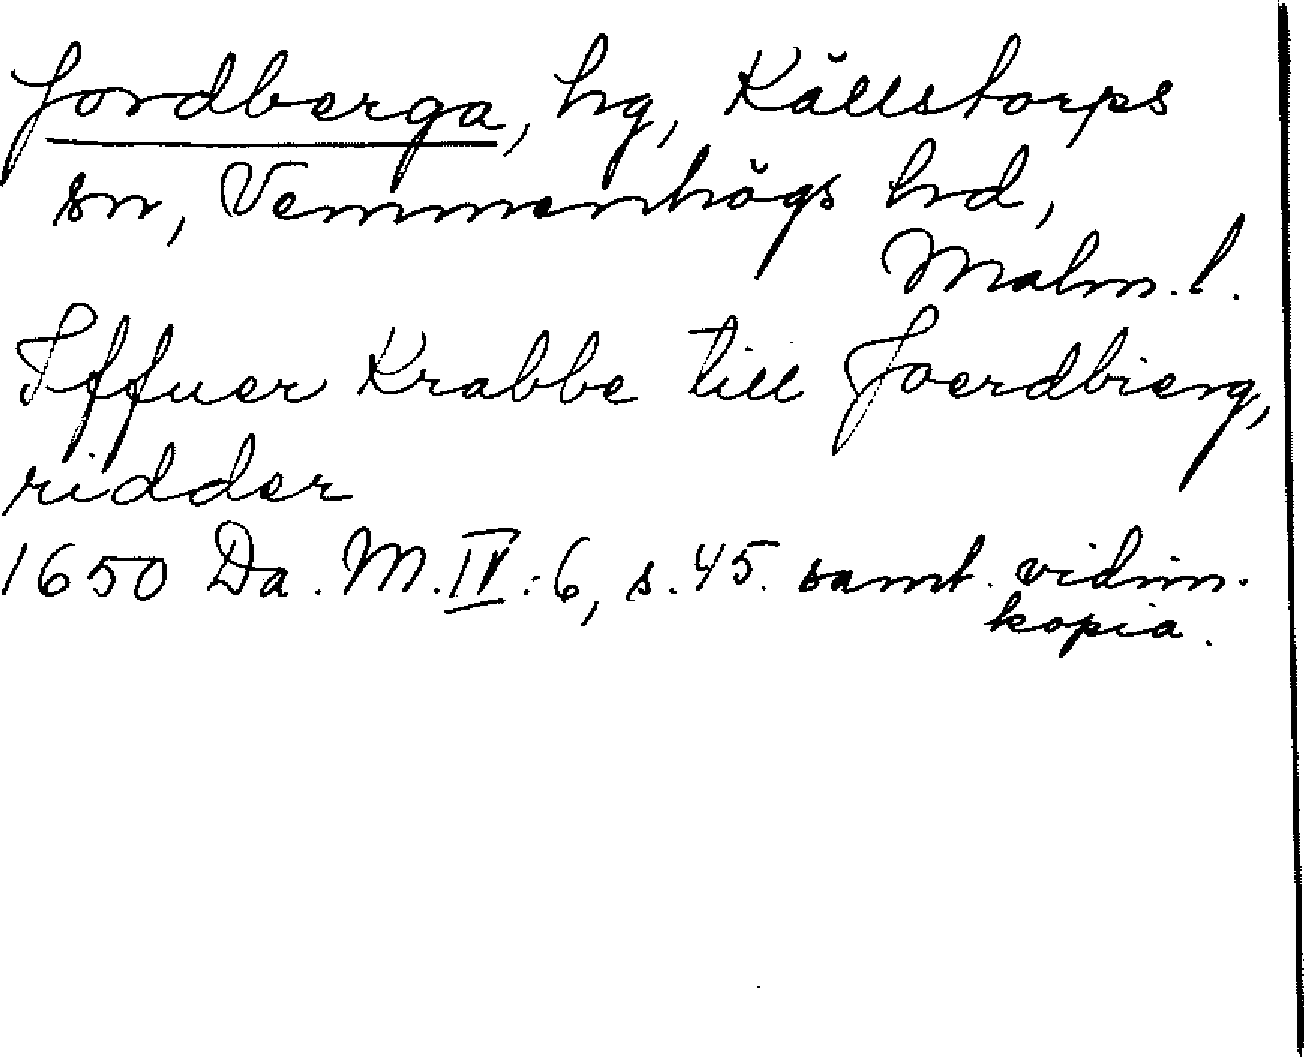 Jordberga, hg, Källstorps
sn, Vemmenhögs hd,
Malm. l.
Iffuer Krabbe till Joerdbierg,
ridder
1650 Da. M. IV:6, s. 45. samt vidim.
kopia.